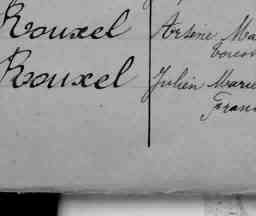 Rouxel Arsène Ma
Rouxel Julien Marie
Fran